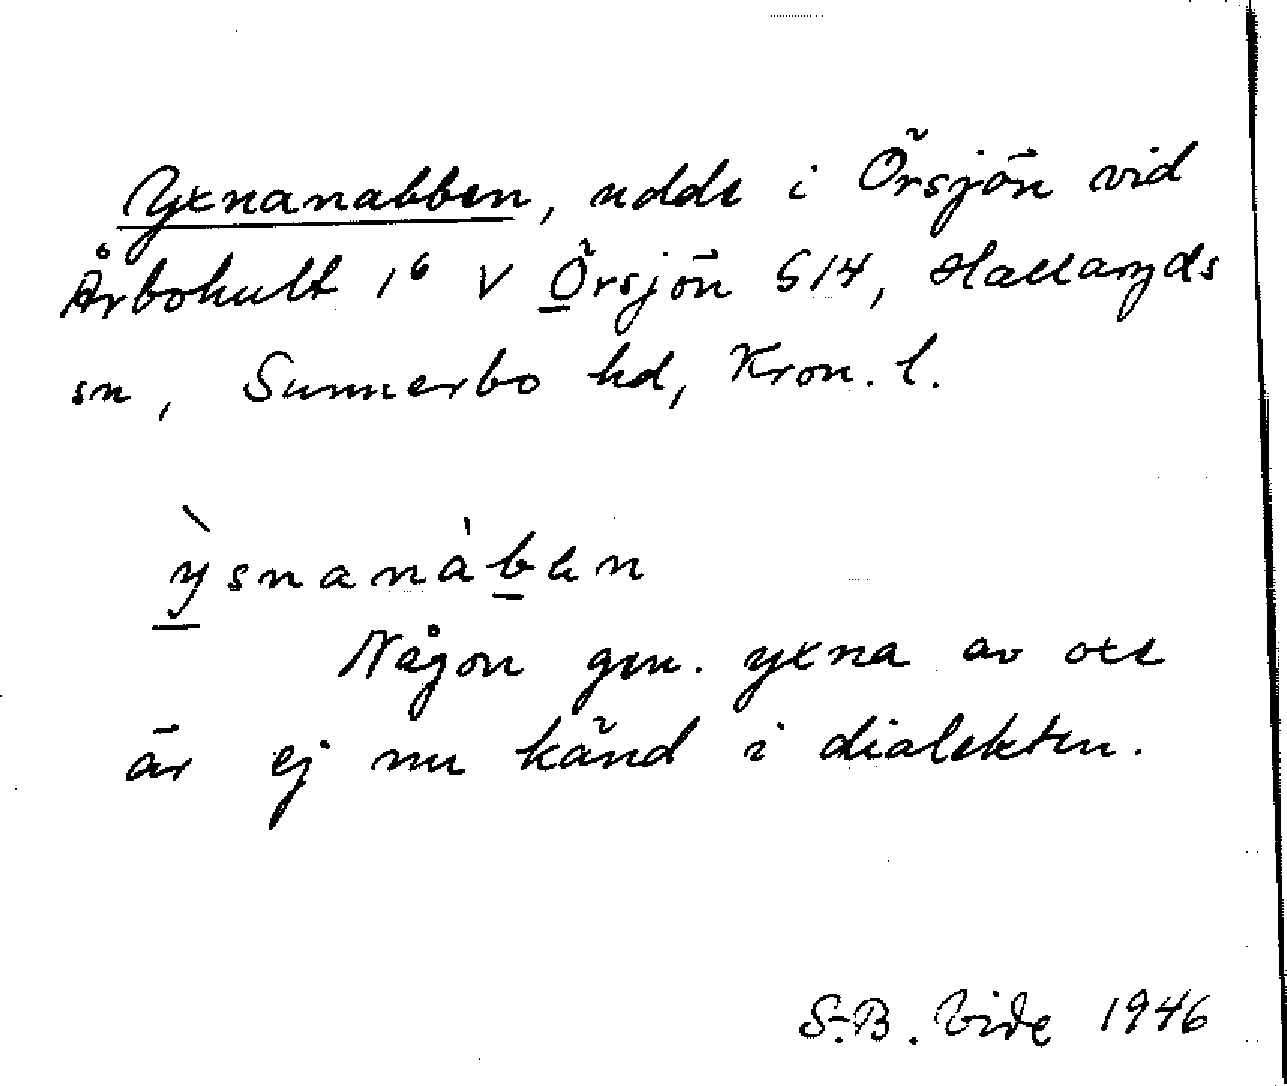 Yxnanabben, udde i Örsjön vid
Årbohult 1⁶ V Örsjön S14, Hallaryds
sn, Sunnerbo hd, Kron. l.
ỳsnanàben
Någon gen. yxna av oxe
är ej nu känd i dialekten.
S.-B. Vide 1946